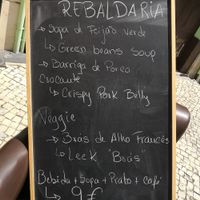 REBALDARIA
→ Sopa de Feijão Verde
↳ Green beans Soup
→ Barriga de Porco
Crocante
↳ Crispy Pork Belly
Veggie
→ Brás de Alho Francês
↳ Leek "Brás"
Bebida + Sopa + Prato + Café
↳ 9€